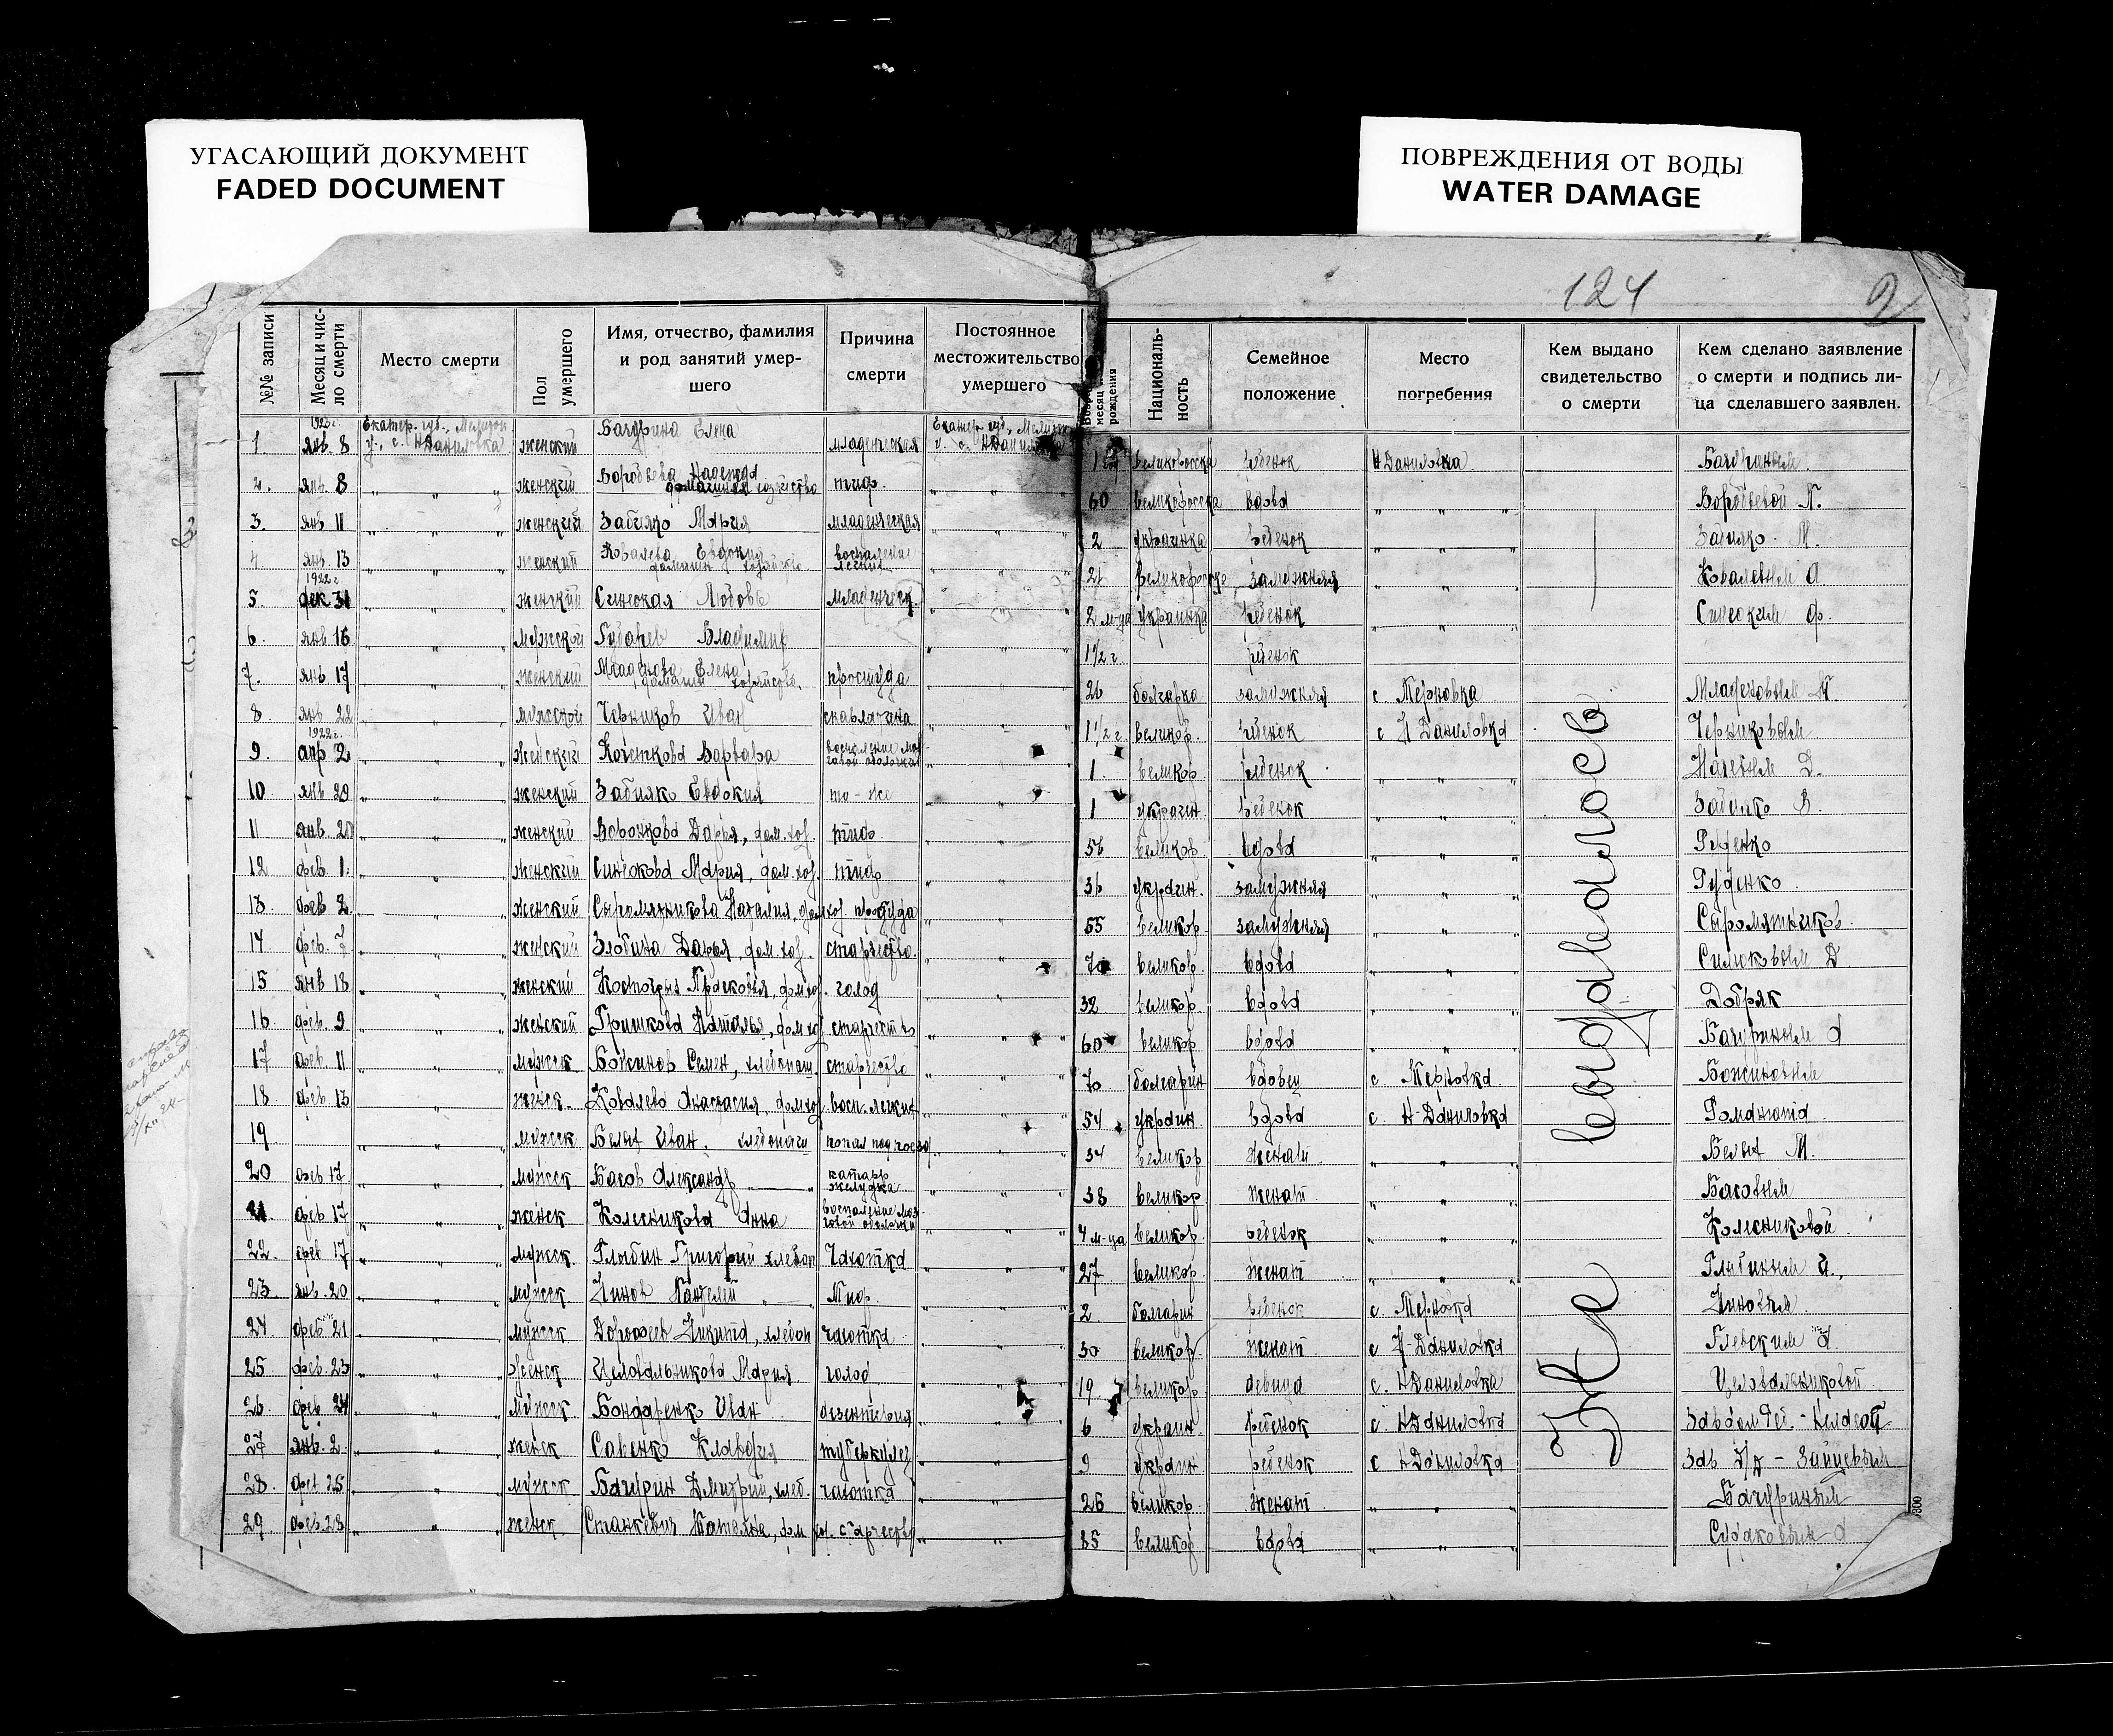 УГАСАЮЩИЙ ДОКУМЕНТ
FADED DOCUMENT
ПОВРЕЖДЕНИЯ ОТ ВОДЫ
WATER DAMAGE
124
№№ записи Месяц и число смерти Место смерти Пол умершего Имя, отчество, фамилия и род занятий умершего Причина смерти Постоянное местожительство умершего месяц рождения Национальность Семейное положение Место погребения Кем выдано свидетельство о смерти Кем сделано заявление о смерти и подпись лица сделавшего заявлен.
1. 1923 г. янв. 8 Екатер. губ., у., с. НДаниловка женский Бачурина Елена младенческая Екатер. губ., с. великоросска ребенок НДаниловка Бачуриным
2. янв. 8 „ „ „ женский Воробьева Надежда домашнее хозяйство тиф. „ „ 60 великоросска вдова „ „ „ Воробьевой
3. янв 11 „ „ „ женский Забияко Мария младенческая „ „ 2 украинка ребенок „ „ „ Забияко М.
4 янв. 13 „ „ „ женский Ковалева Евдокия домашн. хозяйство воспаление легких „ „ великоросска замужняя „ „ „ Ковалевым
5. 1922 г дек 31 „ „ „ женский Синеокая Любовь младенческ. „ „ 2 м-ца украинка ребенок „ „ „ Синеоким Ф.
6. янв. 16 „ „ „ мужской Губарев Владимир „ „ 1 1/2 г. ребенок
7. янв 17 „ „ „ женский Младенова Елена домашн. хозяйство. простуда „ „ 26 болгарка замужняя с Терновка Младеновым
8 янв 22 „ „ „ мужской Черников Иван скарлатина „ „ 1 1/2 г. великор. ребенок с Н Даниловка Черниковым
9 1922 г. апр 2 „ „ „ женский Варвара воспаление мозговой оболочки „ „ 1. великор ребенок „ „ „
10 янв 29 „ „ „ женский Забияко Евдокия то-же „ „ 1 украин. ребенок „ „ „ Забияко В.
11 янв. 20 „ „ „ женский Воронкова Дарья, дом.хоз. тиф „ „ 56 великор. вдова „ „ „
12 фев. 1. „ „ „ женский Синеокова Мария, дом.хоз. тиф „ „ 36 украин. замужняя „ „ „ Руденко
13 фев 2. „ „ „ женский Сыромятникова Наталия, дом хоз. простуда „ „ 55 великор замужняя „ „ „ Сыромятников.
14 фев. 7 „ „ „ женский Злобина Дарья, дом.хоз. старчество. „ „ 70 великор. вдова „ „ „
15 янв 18 „ „ „ женский Прасковья, дом.хоз. голод „ „ 32 великор. вдова „ „ „ Добряк
16 фев. 9 „ „ „ женский Гришкова Наталья, дом.хоз старчество „ „ 60 великор вдова „ „ „ Бачуриным
17 фев. 11 „ „ „ мужск. Божинов Семен, хлебопаш. старчество „ „ 70 болгарин вдовец с. Терновка. Божиновым
18 фев. 13 „ „ „ женск. Ковалева Анастасия, дом.хоз. восп. легких „ „ 54 украин. вдова с. Н-Даниловка
19 „ „ „ мужск. Белых Иван, хлебопаш попал под поезд „ „ 34 великор женат „ „ „ Белых М.
20 фев 17 „ „ „ мужск Басов Александр „ катарр желудка „ „ 38 великор. женат „ „ „ Басовым
21 фев. 17 „ „ „ женск Колесникова Анна воспаление мозговой оболочки „ „ 4 м-ца великор. ребенок „ „ „ Колесниковой.
22. фев 17 „ „ „ мужск. Глыбин Григорий хлебоп чахотка „ „ 27 великор. женат „ „ „ Глыбиным И.,
23 янв. 20 „ „ „ мужск Динов Пантелей „ Тиф. „ „ 2 болгарин ребенок с. Терновка Диновым.
24 фев 21 „ „ „ мужск Дорофеев Никита, хлебоп чахотка „ „ 30 великор. женат с Н-Даниловка
25 фев. 23 „ „ „ женск Целовальникова Мария. голод „ „ 19 великор. девица с. НДаниловка Целовальниковой
26. фев 24 „ „ „ мужск. Бондаренко Иван дизентерия „ „ 6 украин ребенок с НДаниловка
27 янв. 2 „ „ „ женск Савенко Клавдия туберкулез „ „ 9 украин ребенок с НДаниловка Зав Д/д - Зайцевым
28 фев 25 „ „ „ мужск Бачурин Дмитрий, хлеб. чахотка „ „ 26 великор. женат „ „ „ Бачуриным
29 фев. 28 „ „ „ женск Станкевич дом хоз. старчество „ „ 85 великор вдова „ „ „
Не выдавалось